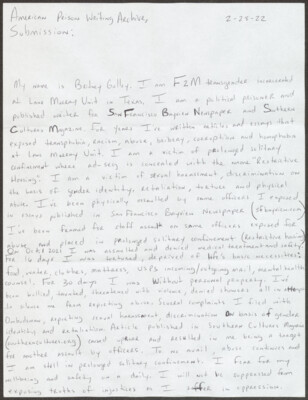 American Prison Writing Archive, 2-28-22
Submissions:
My name is Bentley Golby. I am F2M transgender incarcerated
at Lane Murray Unit in Texas, I am a political prisoner and
published writer for San Francisco Bayview Newspaper and Southern
Cultures Magazine. For years I've written articles and essays that
exposed transphobia, racism, abuse, bribery, corruption and homophobia
at Lane Murray Unit. I am a victim of prolonged solitary
confinement where is concealed with the name "Restrictive
Housing". I am a victim of sexual harassment, discrimination on
the basis of gender identity, retaliation, torture and physical
abuse. I've been physically assaulted by same officers I exposed
in stories published in San Francisco Bayview Newspaper (sfbayview.com)
I've been framed for staff assault on same officers exposed for
abuse, and placed in prolonged solitary confinement (restrictive housing)
On I was assaulted and denied medical treatment and safety
For 16 days I was tortured, deprived of life's basic necessities:
food, water, clothes, mattress, USPS incoming/outgoing mail, mental health
counsel. For 30 days I was without personal property. I've
been bullied, taunted, threatened with violence, denied showers
is abuse me upon reporting abuse. Several complaints I filed with
Ombudsman, reporting sexual harassment, discrimination on basis of gender
identity and retaliation. Article published in Southern Cultures Magazine
(southerncultures.org) caused and resulted in me being a target
for another assault by officers. To no avail, abuse continues and
I am still in prolonged solitary confinement. I fear for my
wellbeing and safety on a daily. I will not be suppressed from
exposing truths of injustices as I suffer in oppression.